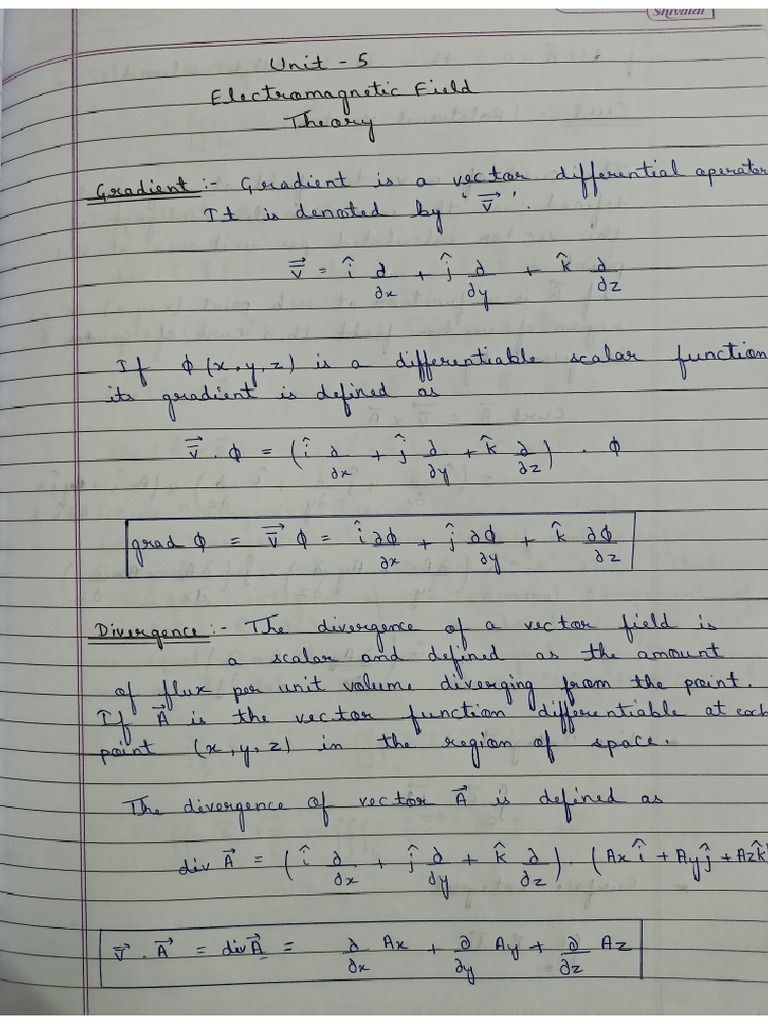 Shivalal
Unit - 5
Electromagnetic Field
Theory
Gradient :- Gradient is a vector differential operator
It is denoted by '∇⃗'.
∇⃗ = î ∂/∂x + ĵ ∂/∂y + k̂ ∂/∂z
If ϕ (x, y, z) is a differentiable scalar function
its gradient is defined as
∇⃗ . ϕ = (î ∂/∂x + ĵ ∂/∂y + k̂ ∂/∂z) . ϕ
grad ϕ = ∇⃗ ϕ = î ∂ϕ/∂x + ĵ ∂ϕ/∂y + k̂ ∂ϕ/∂z
Divergence :- The divergence of a vector field is
a scalar and defined as the amount
of flux per unit volume diverging from the point.
If A⃗ is the vector function differentiable at each
point (x, y, z) in the region of space.
The divergence of vector A⃗ is defined as
div A⃗ = (î ∂/∂x + ĵ ∂/∂y + k̂ ∂/∂z) . (Ax î + Ay ĵ + Az k̂
∇⃗ . A⃗ = div A⃗ = ∂/∂x Ax + ∂/∂y Ay + ∂/∂z Az